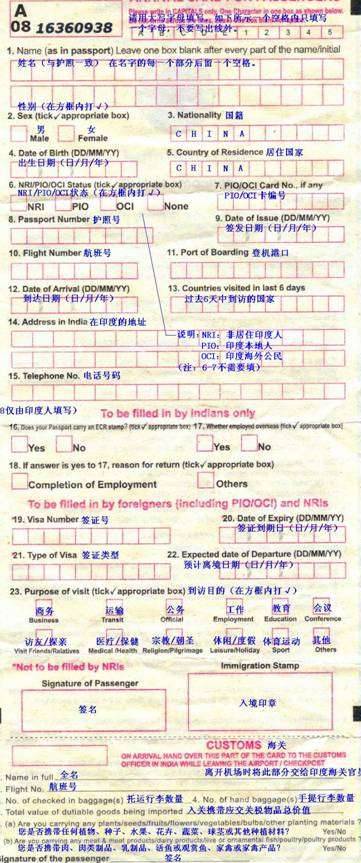 A
08 16360938
请用大写字母填写, 如下所示, 一个空格内只填写
一个字母, 不要写出线外。
Please write in CAPITALS only. One Character in one box as shown below.
1. Name (as in passport) Leave one box blank after every part of the name/initial
姓名（与护照一致） 在名字的每一个部分后留一个空格。
性别（在方框内打√）
2. Sex (tick√appropriate box)
3. Nationality 国籍
男 女
Male Female
C H I N A
4. Date of Birth (DD/MM/YY)
出生日期（日/月/年）
5. Country of Residence 居住国家
C H I N A
6. NRI/PIO/OCI Status (tick√appropriate box)
NRI/PIO/OCI状态（在方框内打√）
7. PIO/OCI Card No., if any
PIO/OCI卡编号
NRI PIO OCI None
8. Passport Number 护照号
9. Date of Issue (DD/MM/YY)
签发日期（日/月/年）
10. Flight Number 航班号
11. Port of Boarding 登机港口
12. Date of Arrival (DD/MM/YY)
到达日期（日/月/年）
13. Countries visited in last 6 days
过去6天中到访的国家
14. Address in India 在印度的地址
说明: NRI: 非居住印度人
PIO: 印度本地人
OCI: 印度海外公民
（注: 6-7不需要填）
15. Telephone No. 电话号码
仅由印度人填写）
To be filled in by Indians only
16. Does your Passport carry an ECR stamp? (tick√appropriate box)
17. Whether employed overseas (tick√appropriate box)
Yes No Yes No
18. If answer is yes to 17, reason for return (tick√appropriate box)
Completion of Employment Others
To be filled in by foreigners (including PIO/OCI) and NRIs
19. Visa Number 签证号
20. Date of Expiry (DD/MM/YY)
签证到期日（日/月/年）
21. Type of Visa 签证类型
22. Expected date of Departure (DD/MM/YY)
预计离境日期（日/月/年）
23. Purpose of visit (tick√appropriate box) 到访目的（在方框内打√）
商务 运输 公务 工作 教育 会议
Business Transit Official Employment Education Conference
访友/探亲 医疗/保健 宗教/朝圣 休闲/度假 体育运动 其他
Visit Friends/Relatives Medical /Health Religion/Pilgrimage Leisure/Holiday Sport Others
*Not to be filled by NRIs
Immigration Stamp
Signature of Passenger
签名
入境印章
CUSTOMS 海关
ON ARRIVAL HAND OVER THIS PART OF THE CARD TO THE CUSTOMS
OFFICER IN INDIA WHILE LEAVING THE AIRPORT / CHECKPOST
离开机场时将此部分交给印度海关官
. Name in full 全名
. Flight No. 航班号
. No. of checked in baggage(s) 托运行李数量 4. No. of hand baggage(s) 手提行李数量
. Total value of dutiable goods being imported 入关携带应交关税物品总价值
(a) Are you carrying any plants/seeds/fruits/flowers/vegetables/bulbs/other planting materials ?
您是否携带任何植物、种子、水果、花卉、蔬菜、球茎或其他种植材料? Yes/No
(b) Are you carrying any meat & meat products/dairy products/live or ornamental fish/poultry/poultry products
您是否携带肉、肉类制品、乳制品、活鱼或观赏鱼、家禽或家禽产品? Yes/No
Signature of the passenger 签名